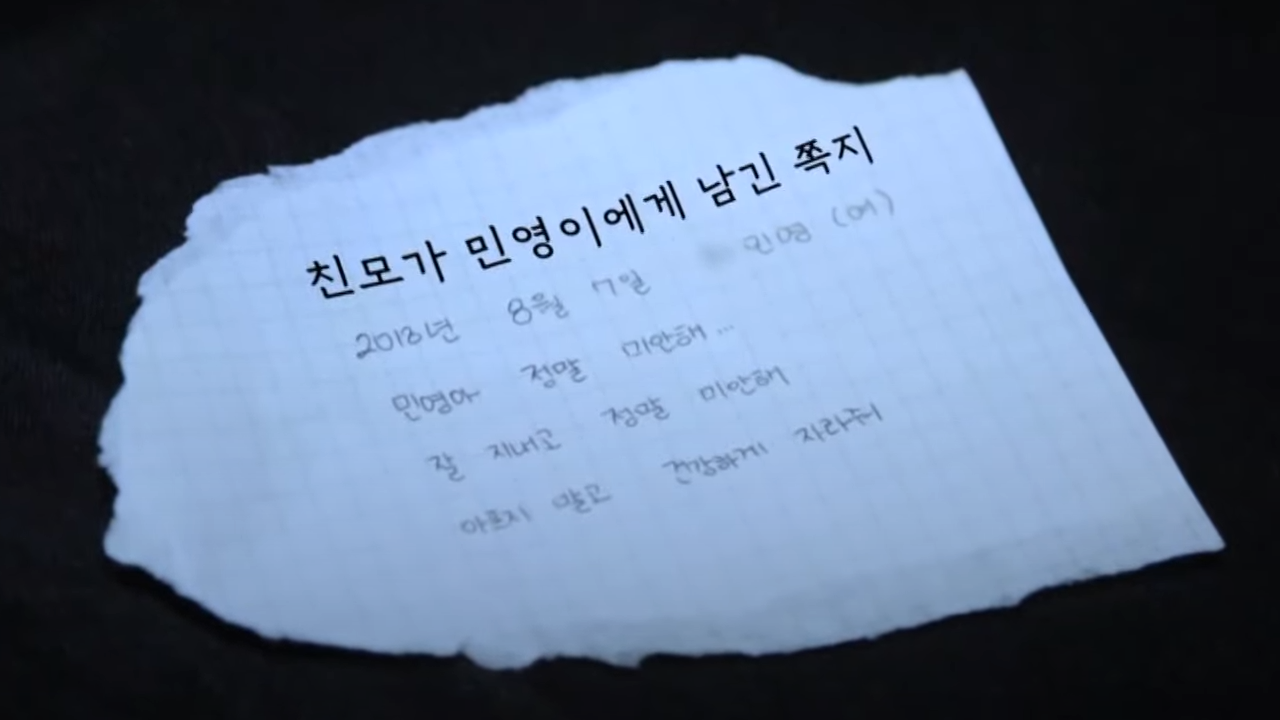 친모가 민영이에게 남긴 쪽지
2013년 8월 7일 민영 (여)
민영아 정말 미안해...
잘 지내고 정말 미안해
아프지 말고 건강하게 자라줘